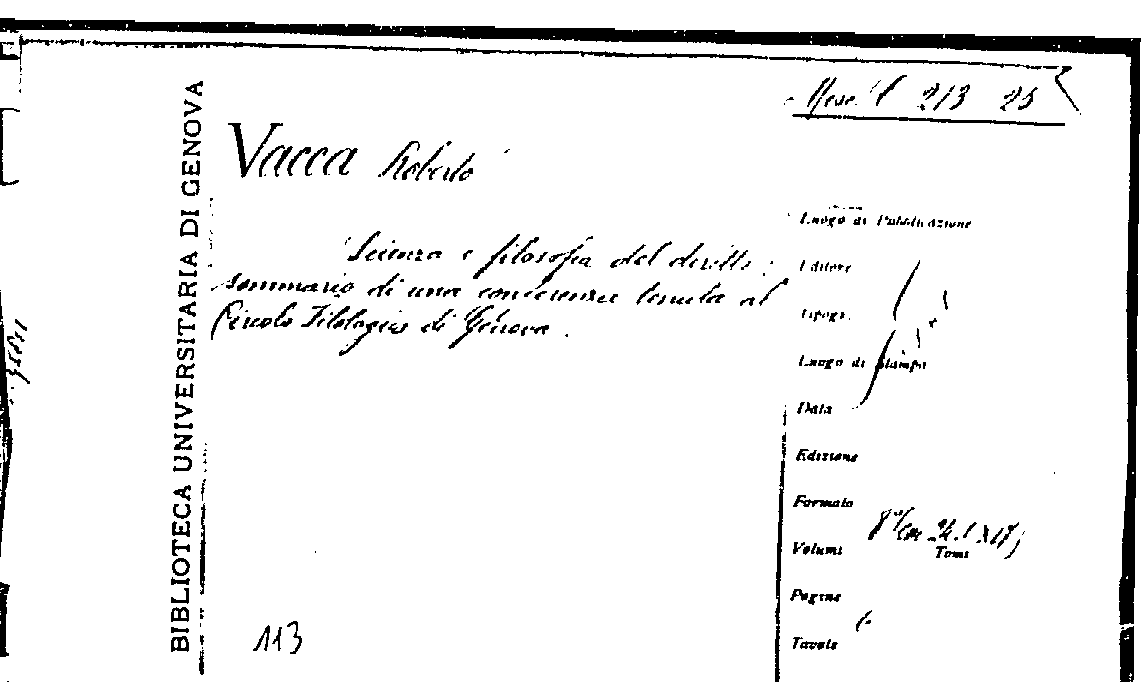 213 25
BIBLIOTECA UNIVERSITARIA DI GENOVA
Vacca Roberto
Scienza e filosofia del diritto:
sommario di una conferenza tenuta al
Circolo Filologico di Genova.
Luogo di Pubblicazione
Editore
Tipogr.
Luogo di Stampa
Data
Edizione
Formato
Volumi Tomi
Pagine
Tavole
113